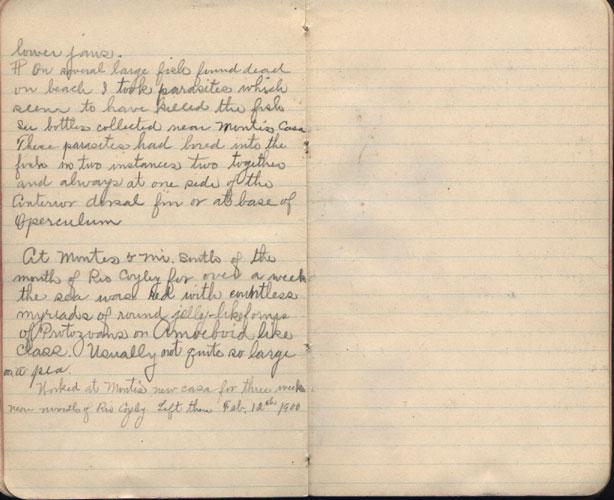 lower jaws.
# On several large fish found dead
on beach I took parasites which
seem to have killed the fish
See bottles collected near Montis Casa
These parasites had bored into the
fish in two instances two together
and always at one side of the
anterior dorsal fin or at base of
Operculum
At Montes & mi. south of the
mouth of Rio Coyley for over a week
the sea was red with countless
myriads of round jelly-like forms
of Protozoans or Amoeboid like
class. Usually not quite so large
as a pea.
Worked at Montis new casa for three weeks
near mouth of Rio Coyley Left there Feb. 12th 1900